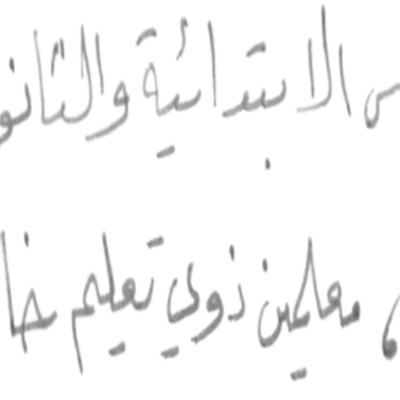 الابتدائية والثانو
معلمين ذوي تعليم خا